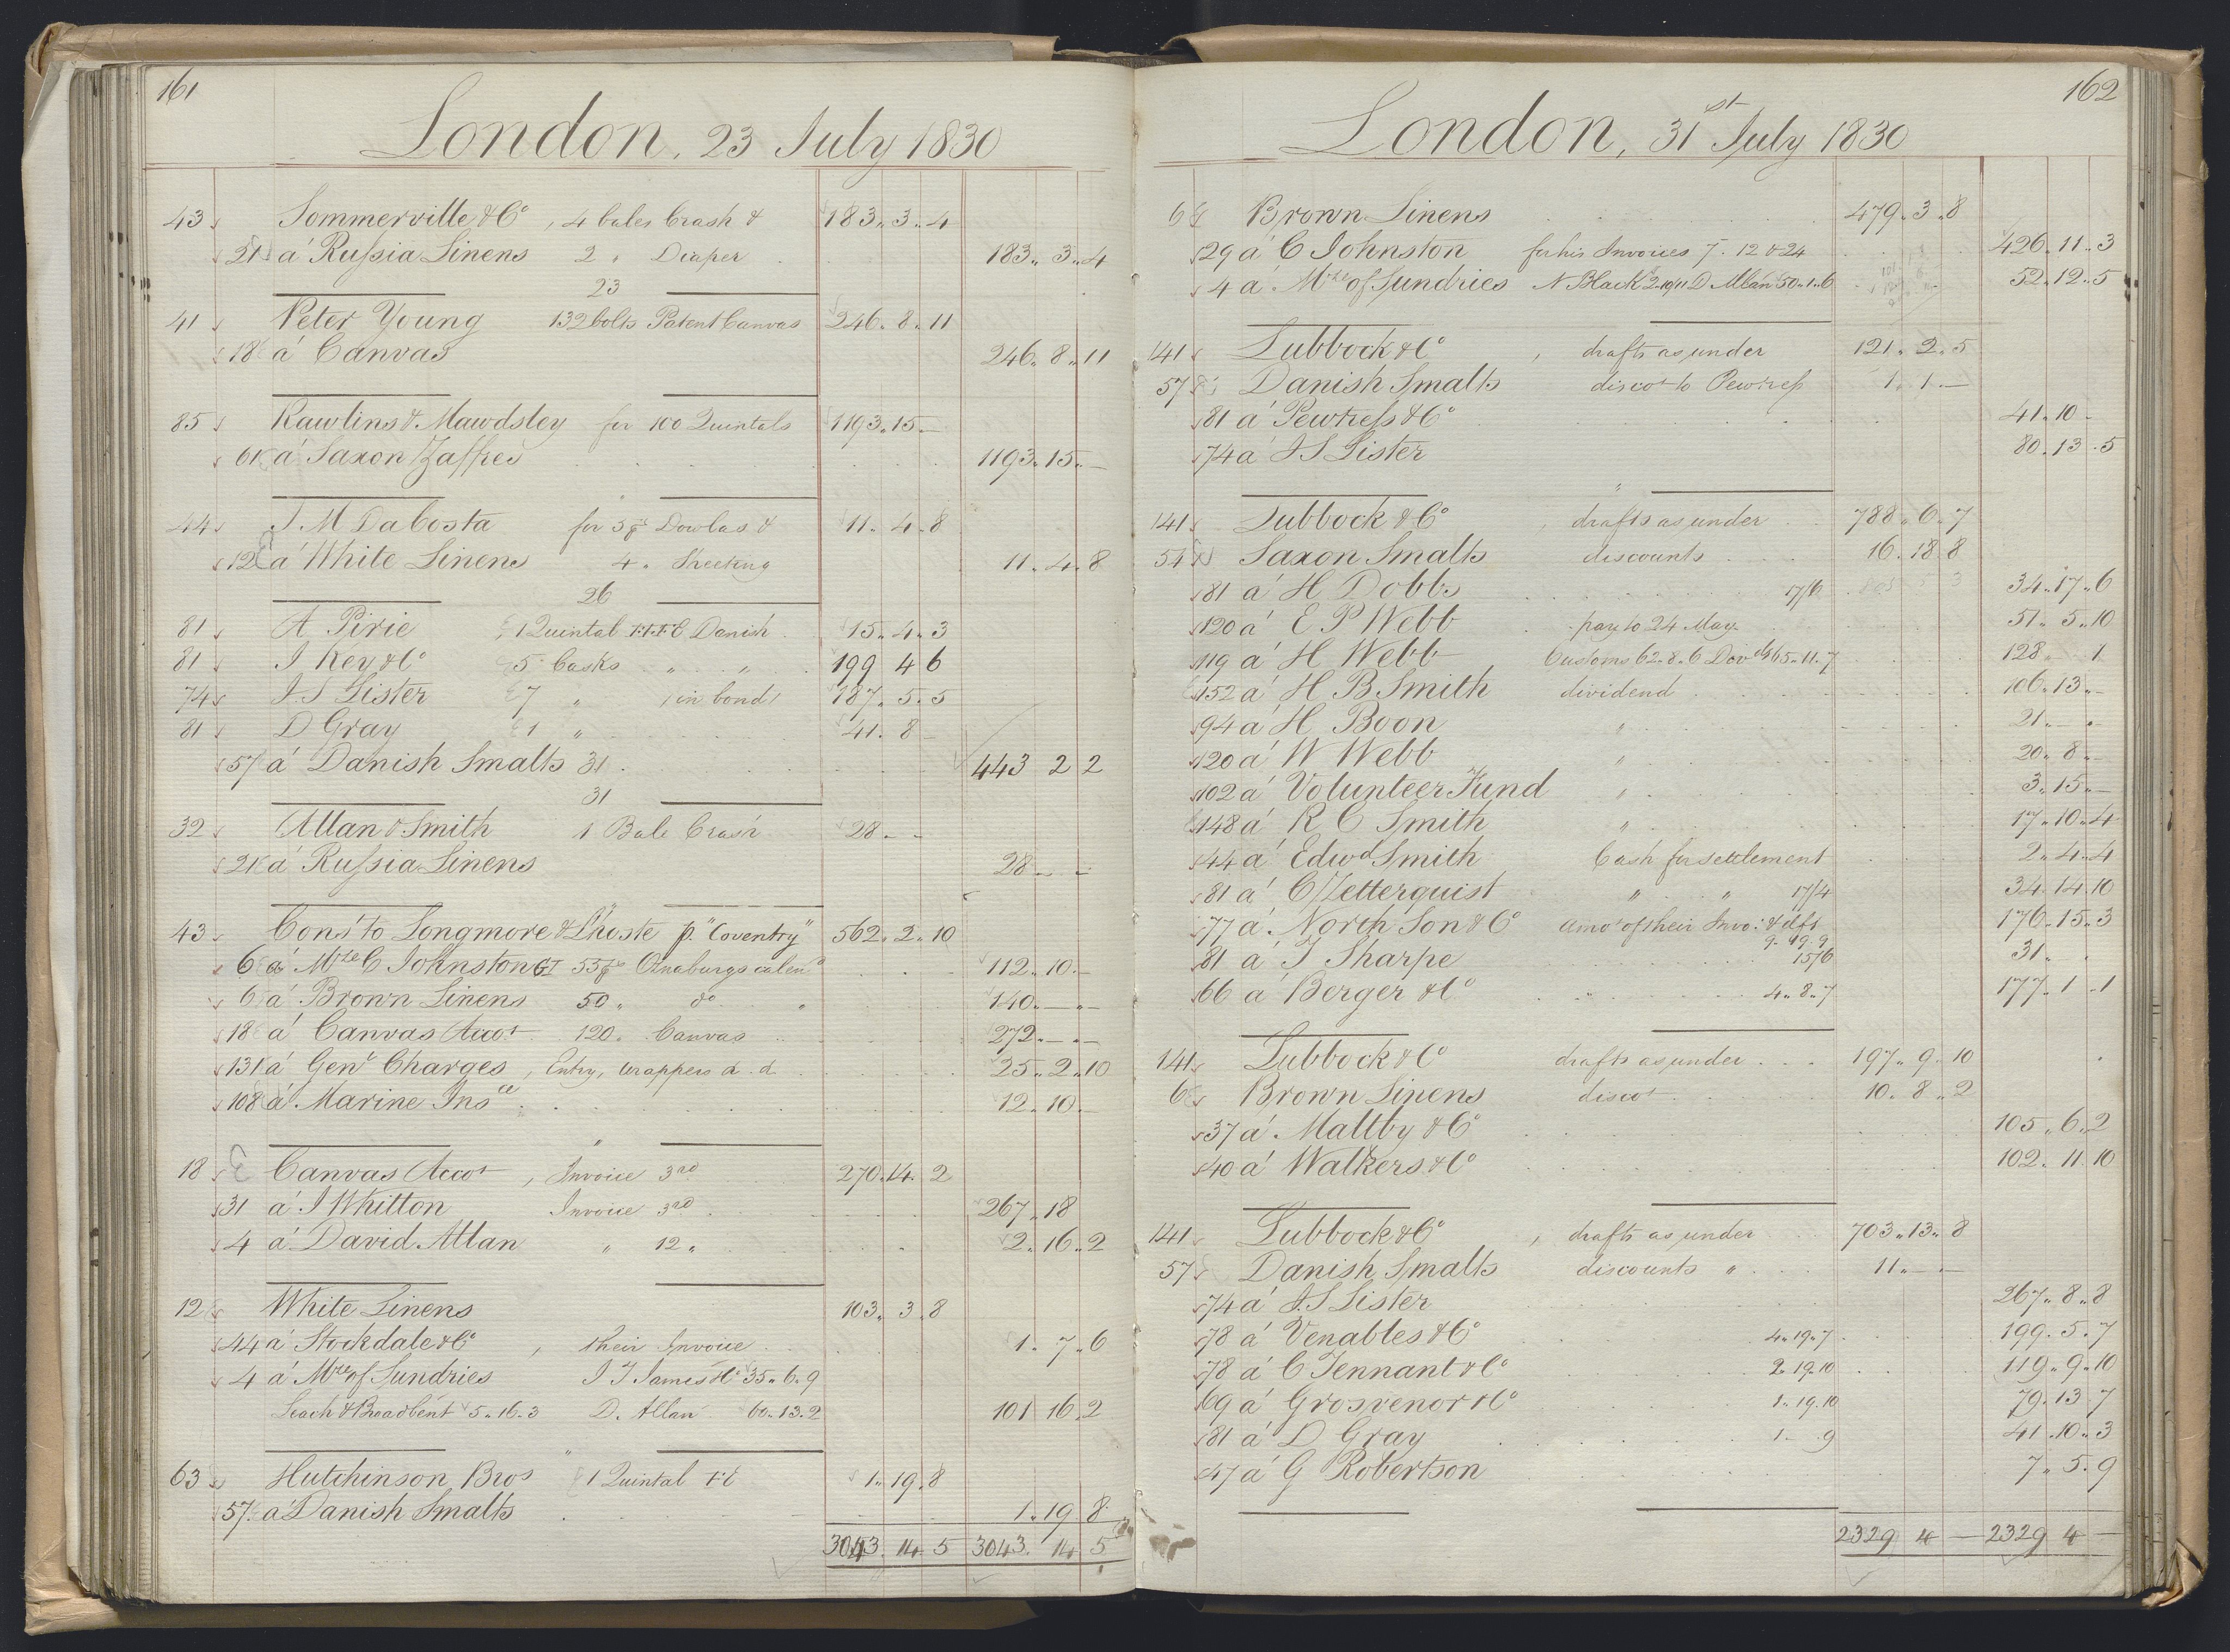 161
London, 23 July 1830
43 Sommerville & Co, 4 bales Crash & 183. 3. 4
21 a Russia Linens 2 " Diaper 183. 3. 4
23
41 Peter Young 132 bolts Patent Canvas 246. 8. 11
18 a Canvas 246. 8. 11
85 Rawlins & Mawdsley for 100 Quintals 1193. 15. —
61 a Saxon Zaffres 1193. 15. —
"
44 J. M Da Costa for 3 ps Dowlas & 11. 4. 8
12 a White Linens 4 " Sheeting 11. 4. 8
26
81 A Pirie 1 Quintal F.F.F.E Danish 15. 4. 3
81 J Key & Co 5 Casks " " 199 4 6
74 J. S Lister 7 " (in bond) 187. 5. 5
81 D Gray 1 " 41. 8 —
57 a Danish Smalts 31 443 2 2
31
32 Allan & Smith 1 Bale Crash 28. — —
21 a Russia Linens 28 — —
"
43 Cons't to Longmore & Lhoste p. "Coventry" 562. 2. 10
6 a Mse C Johnston GI 55 ps Oznaburgs calen'd 112. 10. —
6 a Brown Linens 50 " do " 140. — —
18 a Canvas Accot 120 " Canvas 272. — —
131 a Genl Charges, Entry, wrappers &. &. 25. 2. 10
108 a Marine Insce 12. 10. —
"
18 Canvas Accot, Invoice 3rd 270. 14. 2
31 a J Whitton Invoice 3rd 267. 18
4 a David Allan " 12 " 2. 16. 2
12 White Linens 103. 3. 8
44 a Stockdale & Co, their Invoice 1. 7. 6
4 a Mse of Sundries J J James & Co 35. 6. 9
Leach & Broadbent 5. 16. 3 D. Allan 60. 13. 2 101 16 2
"
63 Hutchinson Bros 1 Quintal F.E 1. 19. 8
57 a Danish Smalts 1. 19 8
3043. 14 5 3043. 14 5
162
London, 31st July 1830
6 Brown Linens 479. 3. 8
129 a C Johnston for his Invoices 7. 12 & 24 426. 11. 3
4 a Mse of Sundries N Black 2.10.11 D Allan 50. 1. 6 52. 12. 5
141 Lubbock & Co, drafts as under 121. 2. 5
57 Danish Smalts discot to Pewtress 1. 1. —
81 a Pewtress & Co 41. 10 -
74 a J S Lister 80. 13. 5
"
141 Lubbock & Co, drafts as under 788. 6. 7
54 Saxon Smalts discounts 16. 18 8
81 a H Dobbs 17/6 34. 17. 6
120 a E P Webb pay to 24 May 51. 5. 10
119 a H Webb Customs 62. 8. 6 Divds 65. 11. 7 128 — 1
152 a H B Smith dividend 106. 13. —
94 a H Boon " 21. — —
120 a W Webb " 20. 8. —
102 a Volunteer Fund " 3. 15. —
148 a R C Smith " 17. 10. 4
44 a Edwd Smith Cash for settlement 2. 4. 4
81 a C Zetterquist " " 17/4 34. 14. 10
77 a North Son & Co amot of their Invo: & dft 176. 15. 3
9. 49. 9
81 a J Sharpe 15/6 31. .
66 a Berger & Co " 4. 8. 7 177. 1. 1
141 Lubbock & Co drafts as under 197. 9. 10
6 Brown Linens discot 10. 8. 2
37 a Maltby & Co 105. 6. 2
40 a Walkers & Co 102. 11. 10
141 Lubbock & Co, drafts as under 703. 13. 8
57 Danish Smalts discounts " 11. — —
74 a J. S Lister 267. 8. 8
78 a Venables & Co 4. 19. 7 199. 5. 7
78 a C Tennant & Co 2. 19. 10 119. 9. 10
69 a Grosvenor & Co 1. 19. 10 79. 13 7
81 a D Gray 1 — 9 41. 10. 3
47 a G Robertson 7. 5. 9
2329 4 — 2329 4 —